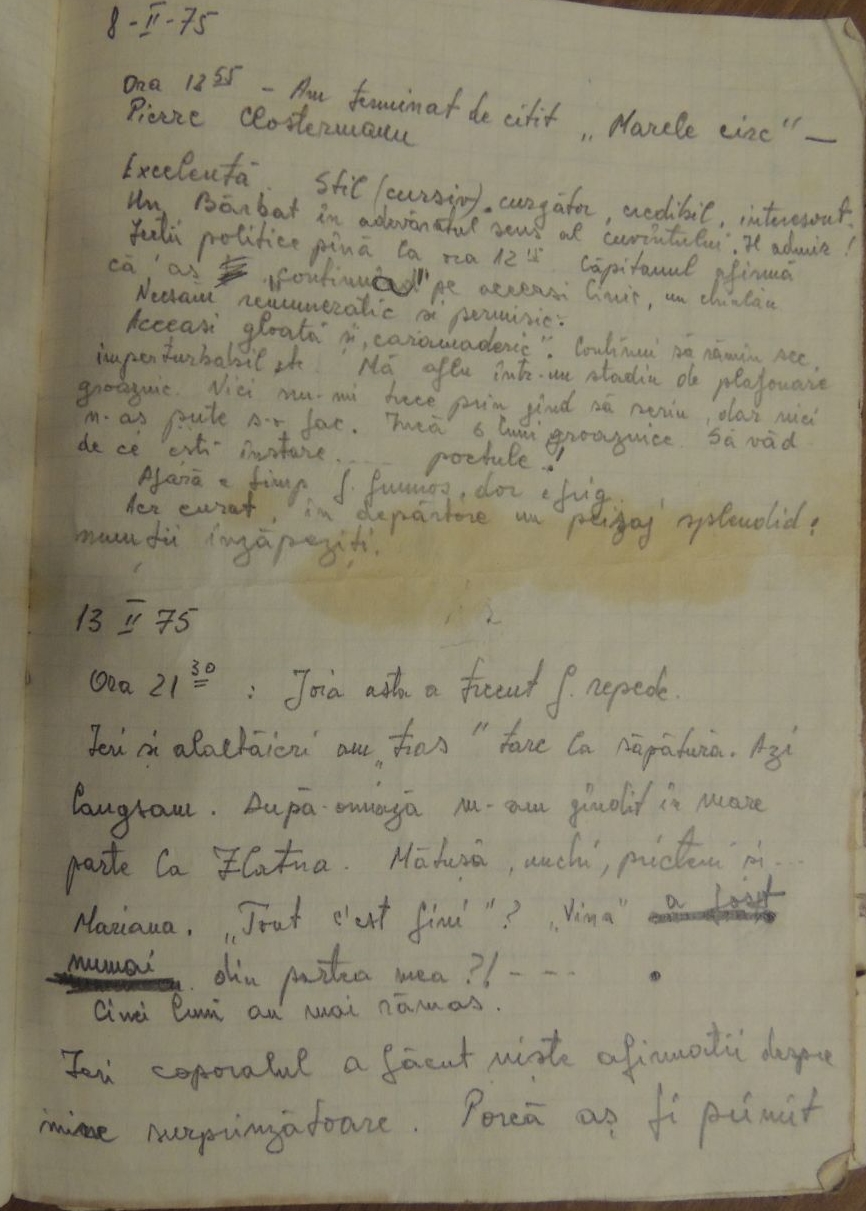 8-II-75
Ora 13 55 - Am terminat de citit „Marele circ" —
Pierre Clostermann
Excelentă. Stil (cursiv). curgător, credibil, interesant.
Un Bărbat în adevăratul sens al cuvîntului. Îl admir!
politice pînă la ora 12 Căpitanul afirmă
că aș „continua" pe aceeași linie, un
Nevsam remuneratie si permisie.
Aceeasi gloată și „caramaderie". Continui să rămîn sec,
imperturbabil etc. Mă aflu într-un stadiu de plafonare
groaznic. Nici nu-mi trece prin gînd să scriu, dar nici
n-aș pute s-o fac. Încă 6 luni groaznice. Să văd
de ce ești înstare..... poetule!
Afară e timp f. frumos, dar e frig.
Aer curat, în depărtare un peizaj splendid:
munții înzăpeziți.
13 II 75
Ora 21 30 : Joia asta a trecut f. repede.
Ieri si alaltăieri am „tras" tare la săpătură. Azi
langsam. După-amiază m-am gîndit în mare
parte la Zlatna. Mătușă, unchi, prieteni si...
Mariana. „Tout c'est fini"? „Vina" a fost
numai din partea mea?!----
Cinci luni au mai rămas.
Ieri caporalul a făcut niste afirmatii despre
mine surprinzătoare. Parcă aș fi primit